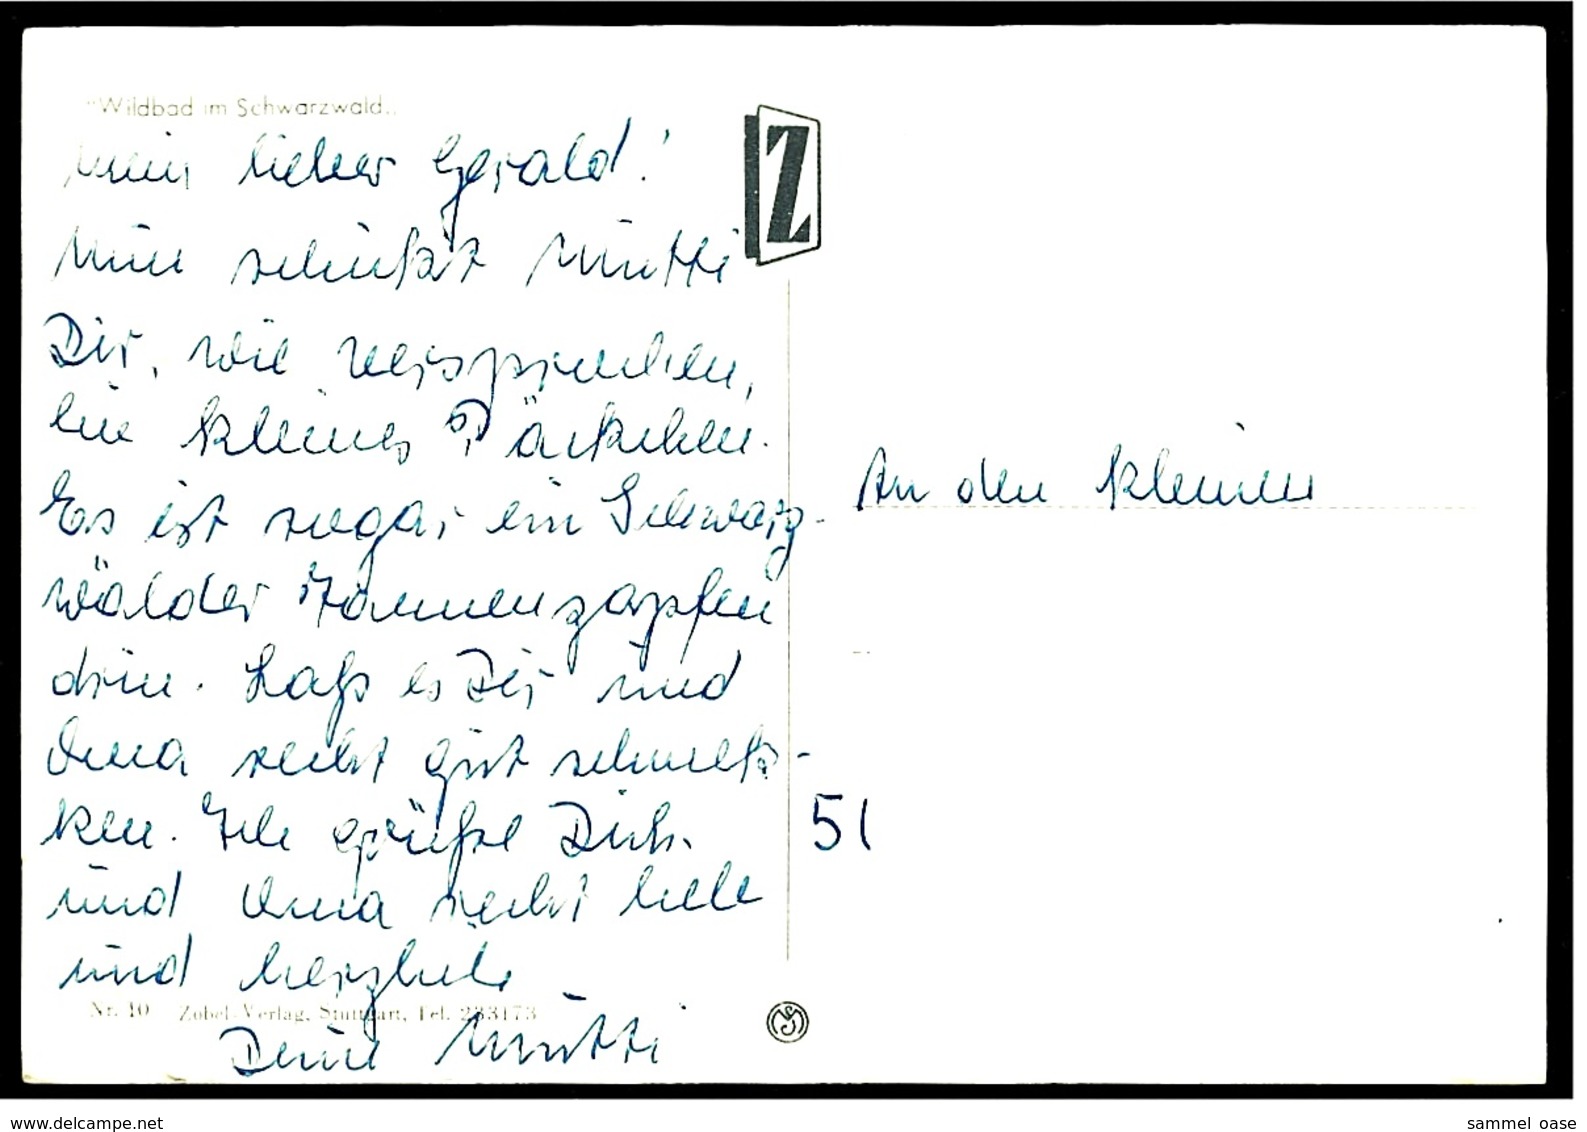 "Wildbad im Schwarzwald"
Mein lieber Gerald!
Nun schickt Mutti
Dir, wie versprochen,
ein kleines Päckchen.
Es ist sogar ein Schwarz-
wälder Tannenzapfen
drin. Laß es Dir und
Oma recht gut schmek-
ken. Ich grüße Dich
und Oma recht lieb
und herzlich
Nr. 10 Zobel-Verlag, Stuttgart, Tel. 233173
Deine Mutti
Z
An den kleinen
51
www.delcampe.net
sammel_oase